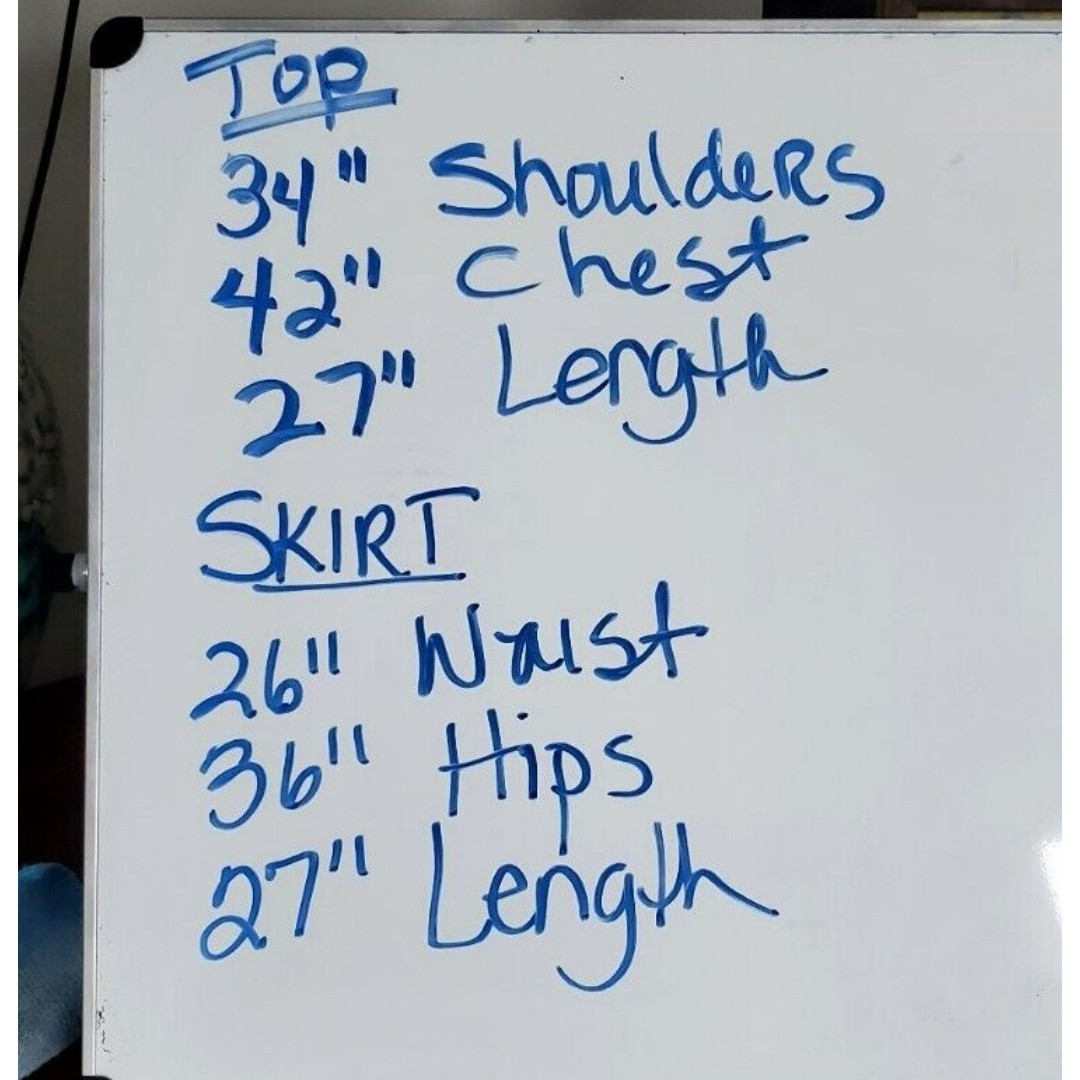 Top
34" Shoulders
42" Chest
27" Length
SKIRT
26" Waist
36" Hips
27" Length